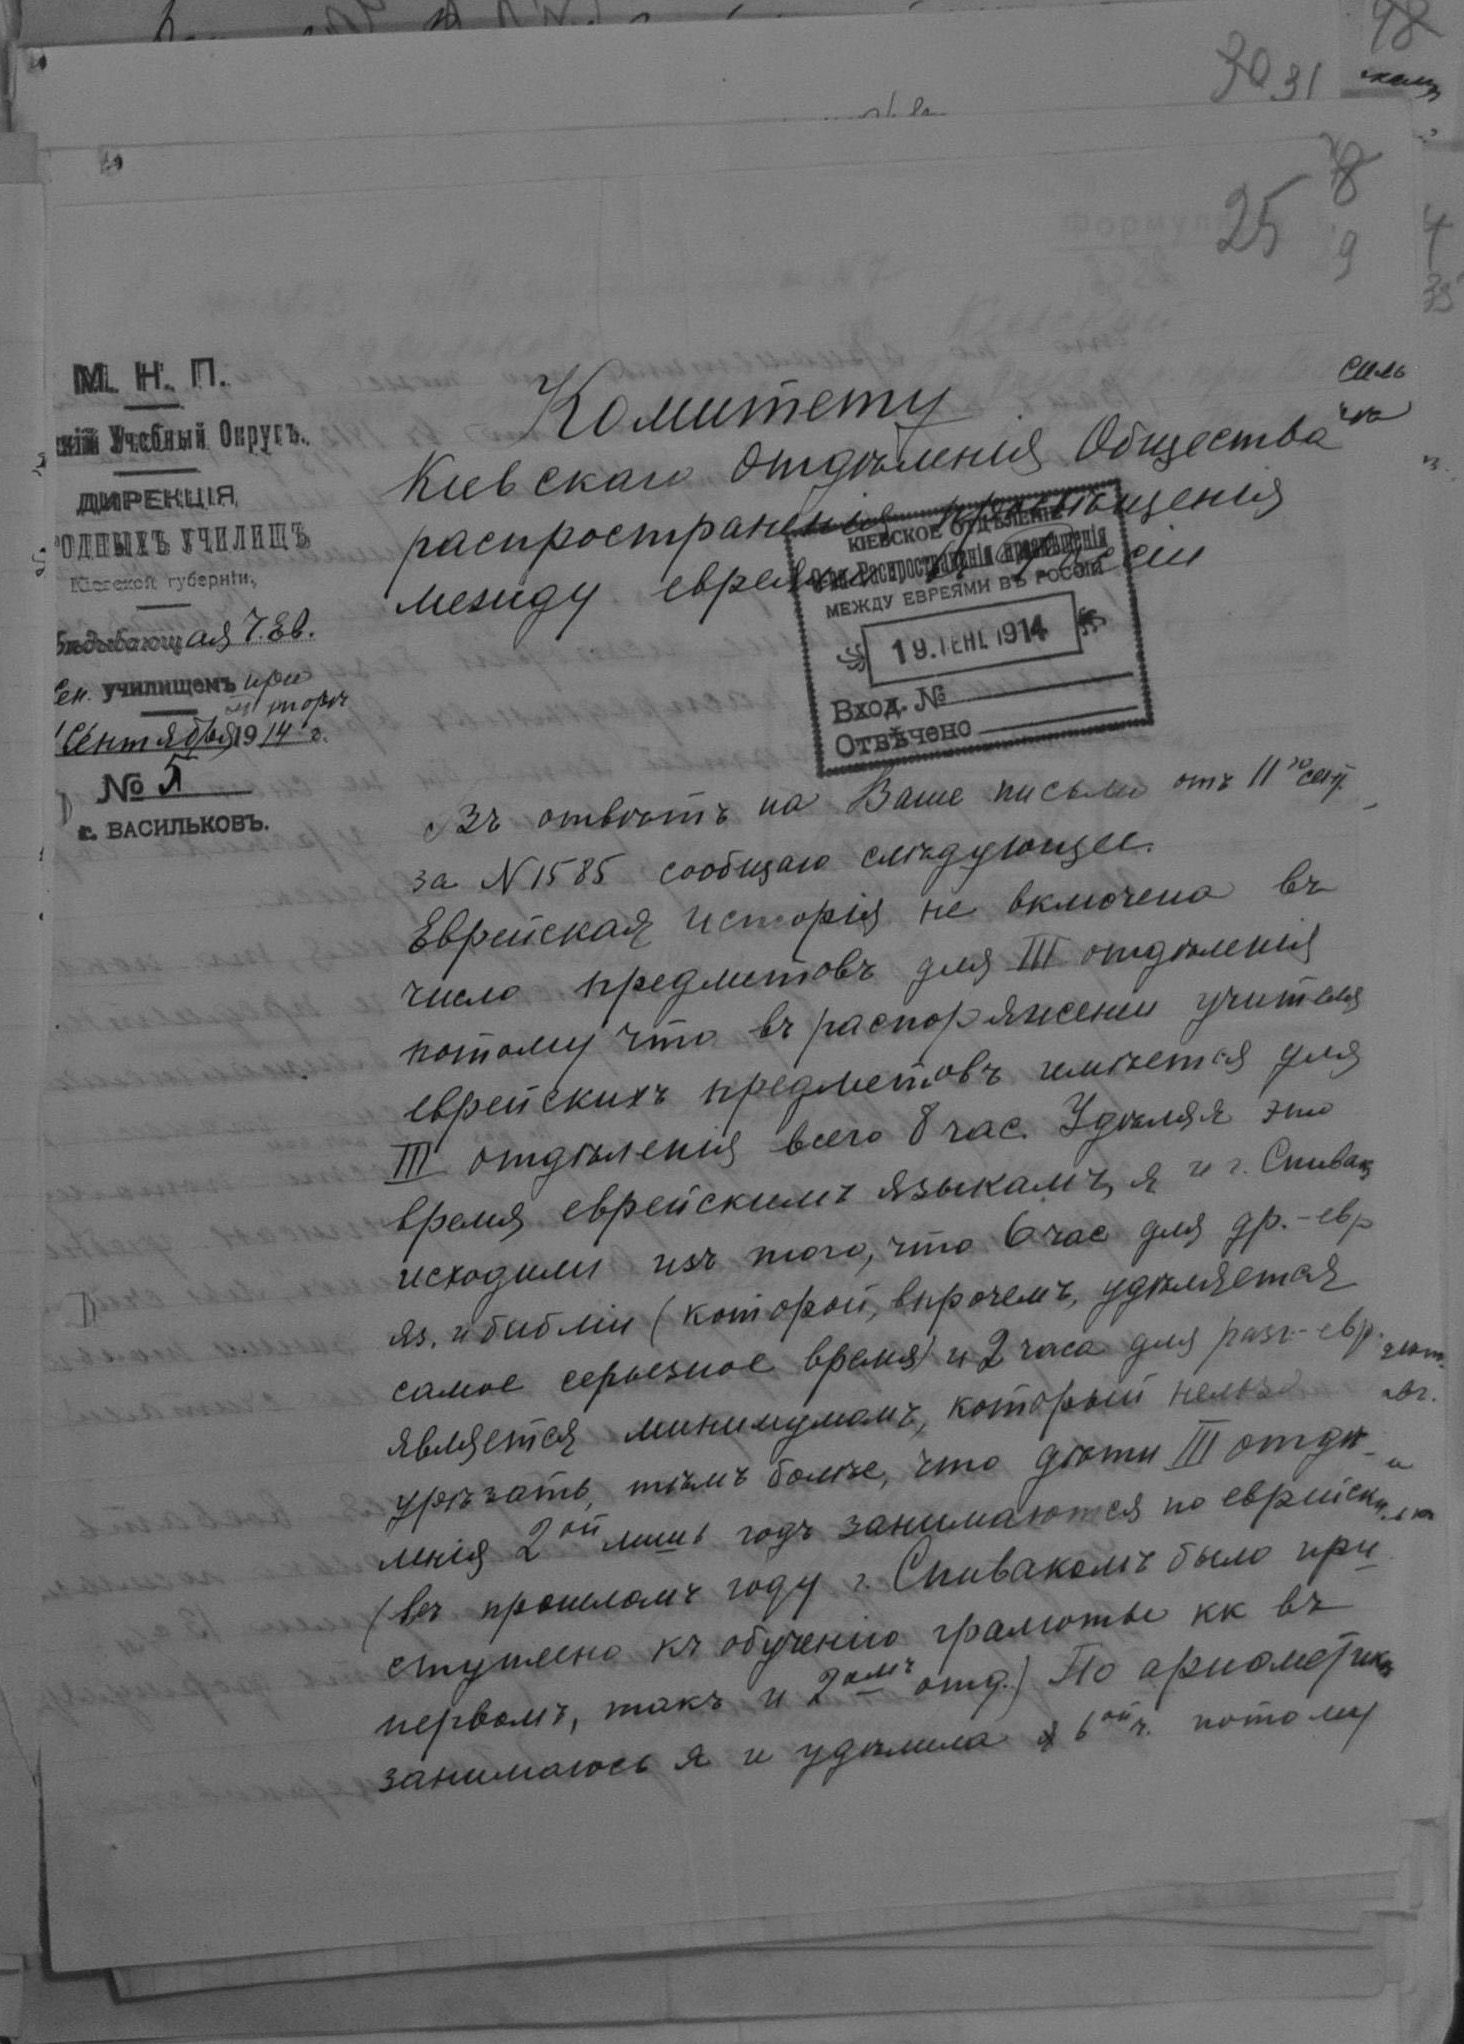 30 31
25
М. Н. П.
скій Учебный Округъ.
ДИРЕКЦІЯ
РОДНЫХЪ УЧИЛИЩЪ
Кіевской губерніи,
ѣдывающая Ч. Ев.
училищемъ при
Сентября 1914 г.
№ 5
г. ВАСИЛЬКОВЪ.
Комитету
Кіевскаго Отдѣленія Общества
распространенія просвѣщенія
между евреями въ Россіи
КІЕВСКОЕ ОТДѢЛЕНІЕ
О-ва Распространенія просвѣщенія
МЕЖДУ ЕВРЕЯМИ ВЪ РОССІИ
19. СЕН. 1914
Вход. №
Отвѣчено
Въ отвѣтъ на Ваше письмо отъ 11го сент.
за N 1585 сообщаю слѣдующее.
Еврейская исторія не включена въ
число предметовъ для III отдѣленія
потому что въ распоряженіи учителя
еврейскихъ предметовъ имѣется для
III отдѣленія всего 8 час. Удѣляя это
время еврейскимъ языкамъ, я и г. Спивакъ
исходили изъ того, что 6 час для др.-евр
яз. и библіи (которой, впрочемъ, удѣляется
самое серьезное время) и 2 часа для разг-евр.
является минимумомъ, который нельзя
урѣзать, тѣмъ болѣе, что дѣти III отдѣ-
ленія 2ой лишь годъ занимаются по еврейски
(въ прошломъ году г. Спивакомъ было при
ступлено къ обученію грамотѣ кк въ
первомъ, такъ и 2омъ отд.) По ариѳметикѣ
занимаюсь я и удѣлила 6ой ч. потому